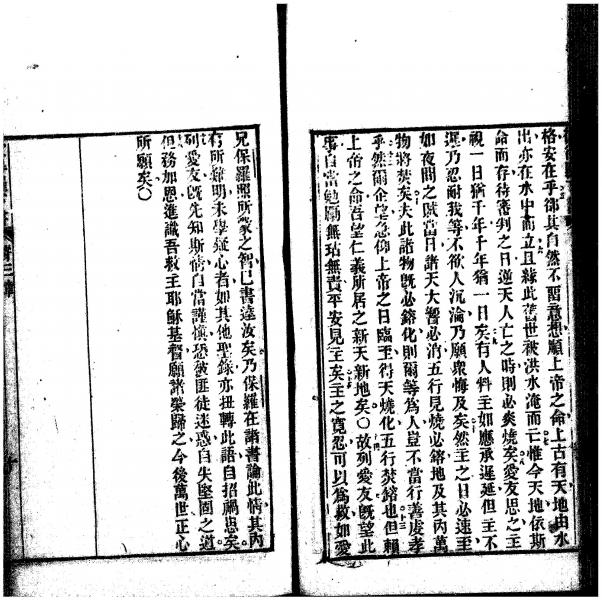 格安在乎卻其自然不留意想願上帝之命上古有天地由水
出亦在水中而立且緣此舊世被洪水淹而亡惟今天地依斯
命而存待審判之日逆天人亡之時則必炎燒矣愛友思之主
視一日猶千年千年猶一日矣有人料主如應承遲延但主不
遲乃忍耐我等不欲人沉淪乃願眾悔及矣然主之日必速至
如夜間之賊當日諸天大響必消五行見燒必鎔地及其內萬
物將焚矣夫此諸物既必鎔化則爾等為人豈不當行善虔孝
乎然爾企望急仰上帝之日臨至得天燒化五行焚鎔也但賴
上帝之命吾望仁義所居之新天新地矣〇故列愛友既望此
事自當勉勵無玷無責平安見主矣主之寬忍可以為救如愛
兄保羅照所蒙之智已書達汝矣乃保羅在諸書論此情其內
有所難明未學疑心者如其他聖錄亦扭轉此語自招禍患矣
列愛友既先知斯情自當謹慎恐被匪徒迷惑自失堅固之道
務加恩進識吾救主耶穌基督願諸榮歸之今後萬世正心
所願矣〇